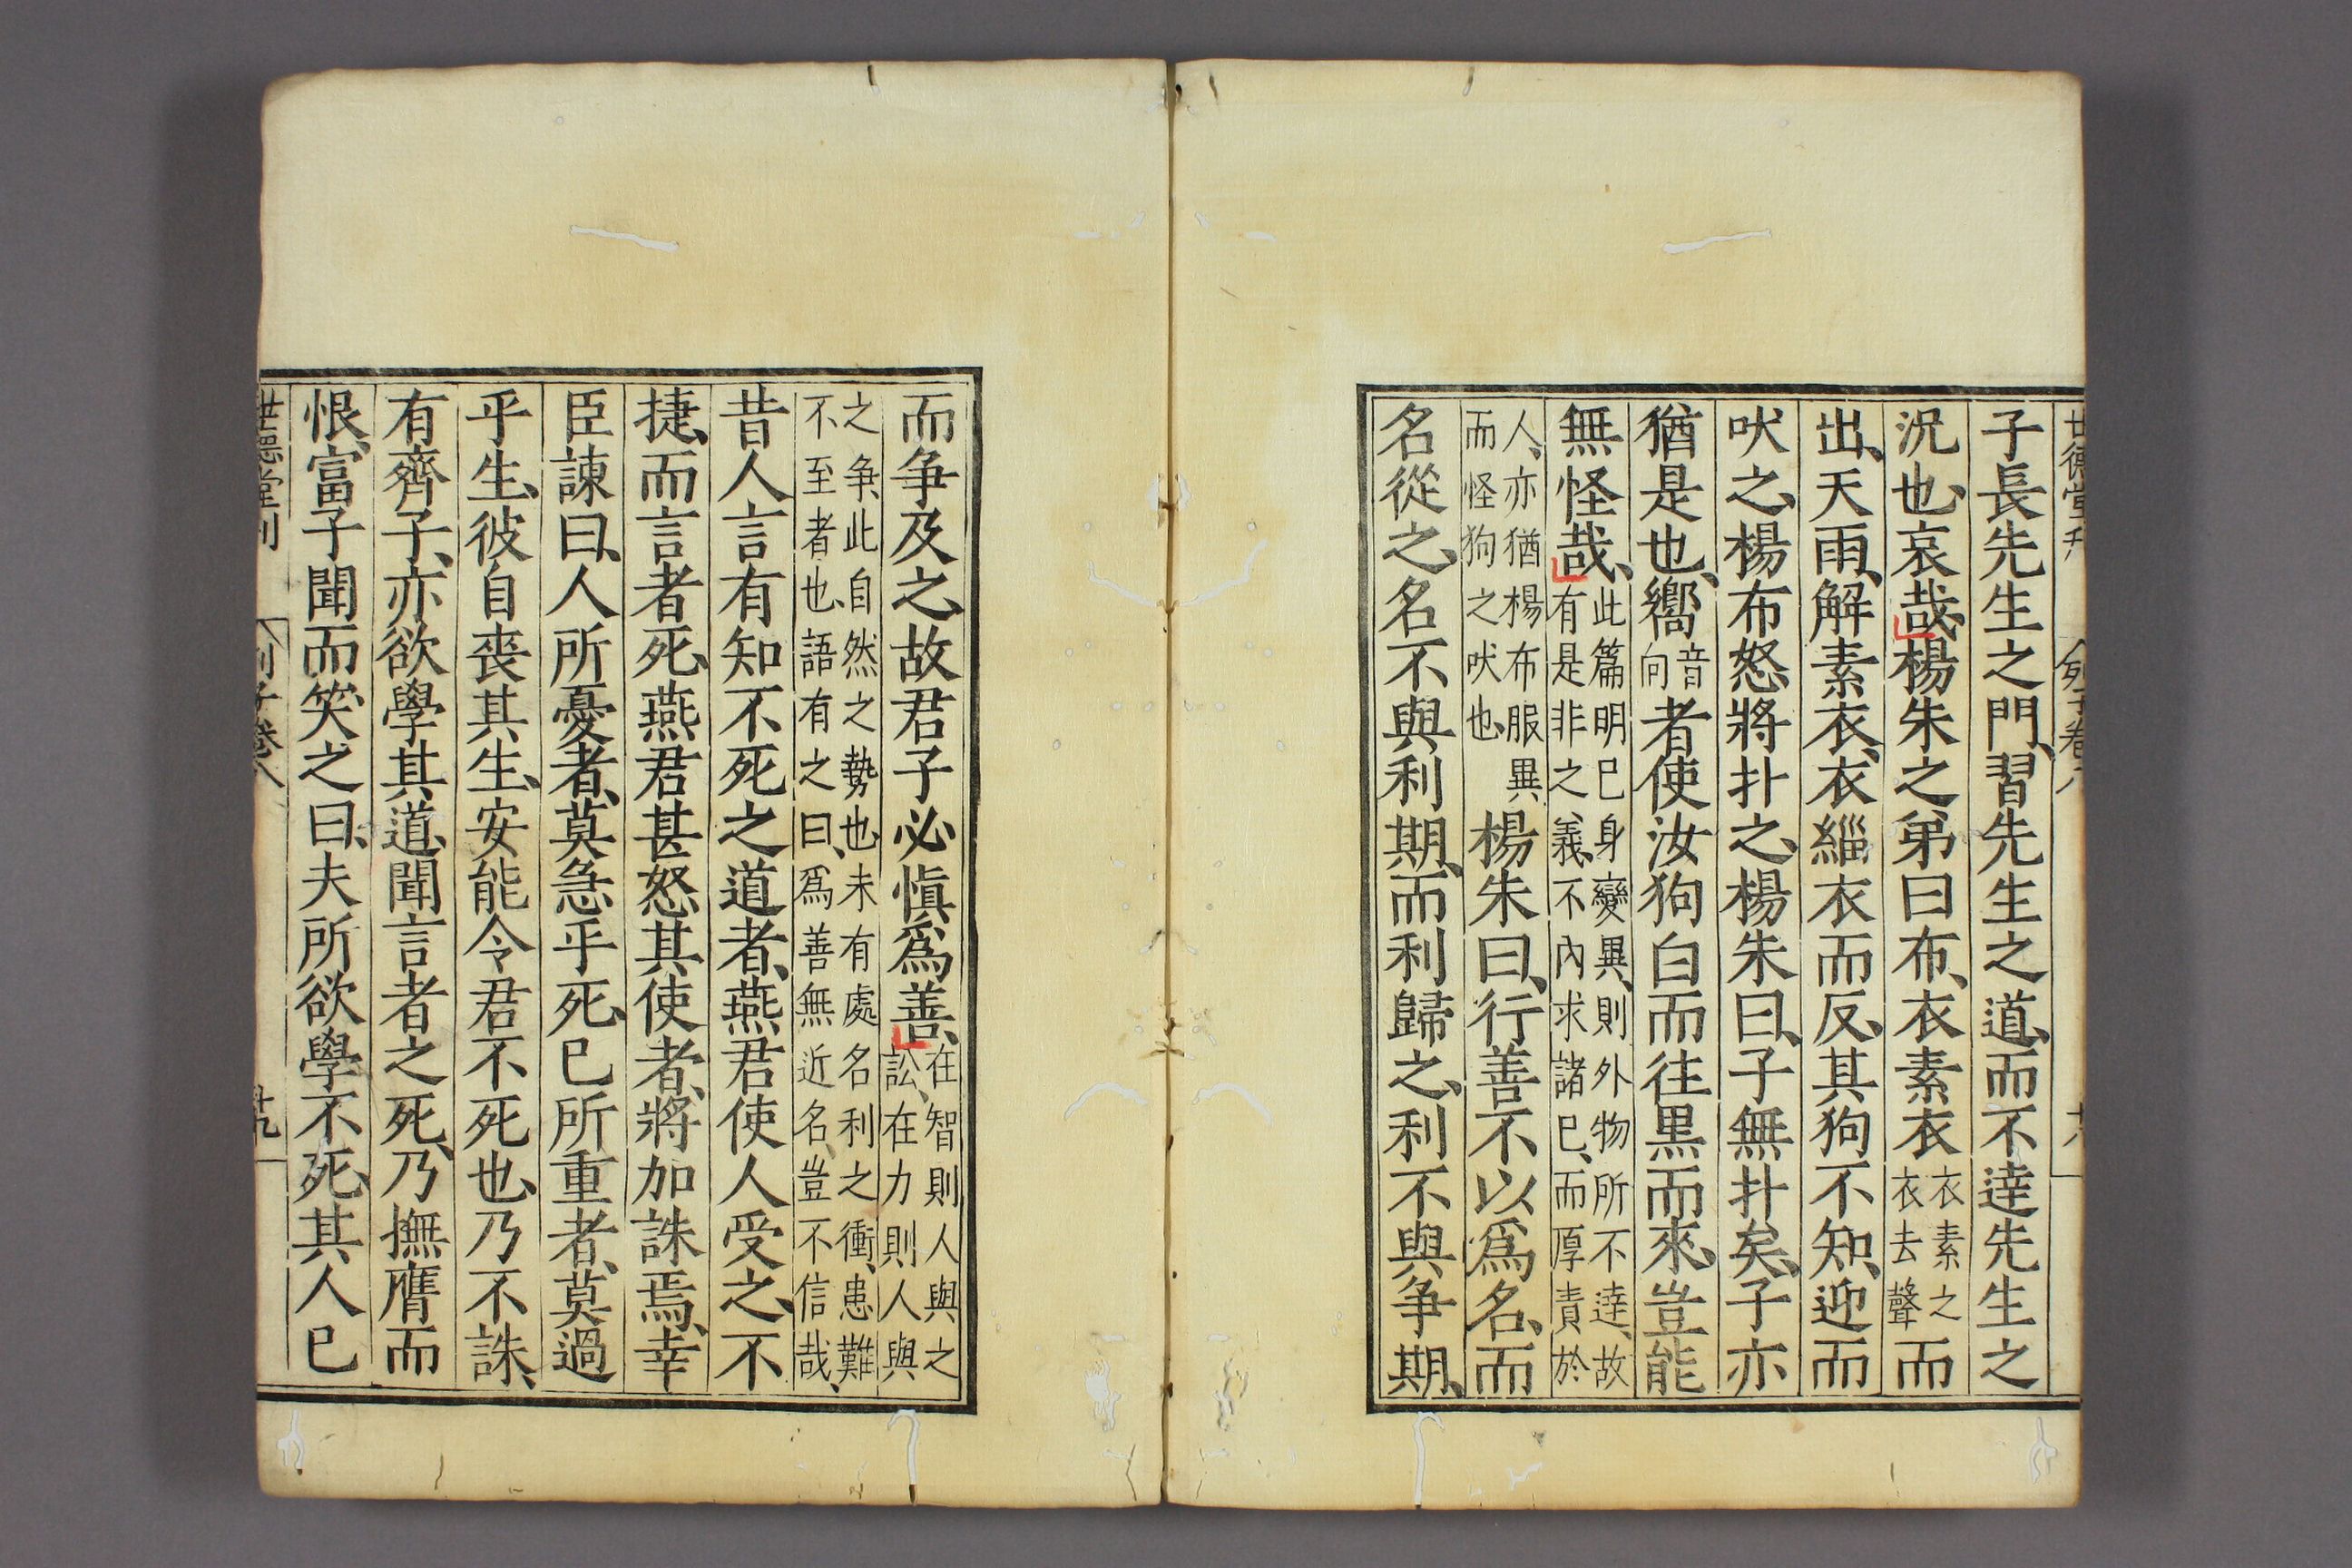 世德堂刊 列子卷八 十八
子長先生之門、習先生之道、而不達先生之
況也、哀哉、楊朱之弟曰布、衣素衣衣素之衣去聲而
出、天雨、解素衣、衣緇衣而反、其狗不知、迎而
吠之、楊布怒將扑之、楊朱曰、子無扑矣、子亦
猶是也、嚮音向者使汝狗白而往黒而來、豈能
無怪哉、此篇明已身變異、則外物所不達、故有是非之義、不內求諸已、而厚責於
人、亦猶楊布服異、而怪狗之吠也、楊朱曰、行善不以爲名、而
名從之、名不與利期、而利歸之、利不與爭期、
而爭及之、故君子必愼爲善、在智則人與之訟、在力則人與
之爭、此自然之勢也、未有處名利之衝、患難不至者也、語有之曰、爲善無近名、豈不信哉、
昔人言有知不死之道者、燕君使人受之、不
捷、而言者死、燕君甚怒其使者、將加誅焉、幸
臣諫曰、人所憂者、莫急乎死、已所重者、莫過
乎生、彼自喪其生、安能令君不死也、乃不誅、
有齊子、亦欲學其道、聞言者之死、乃撫膺而
恨、富子聞而笑之曰、夫所欲學不死、其人已
世德堂刊 列子卷八 十九